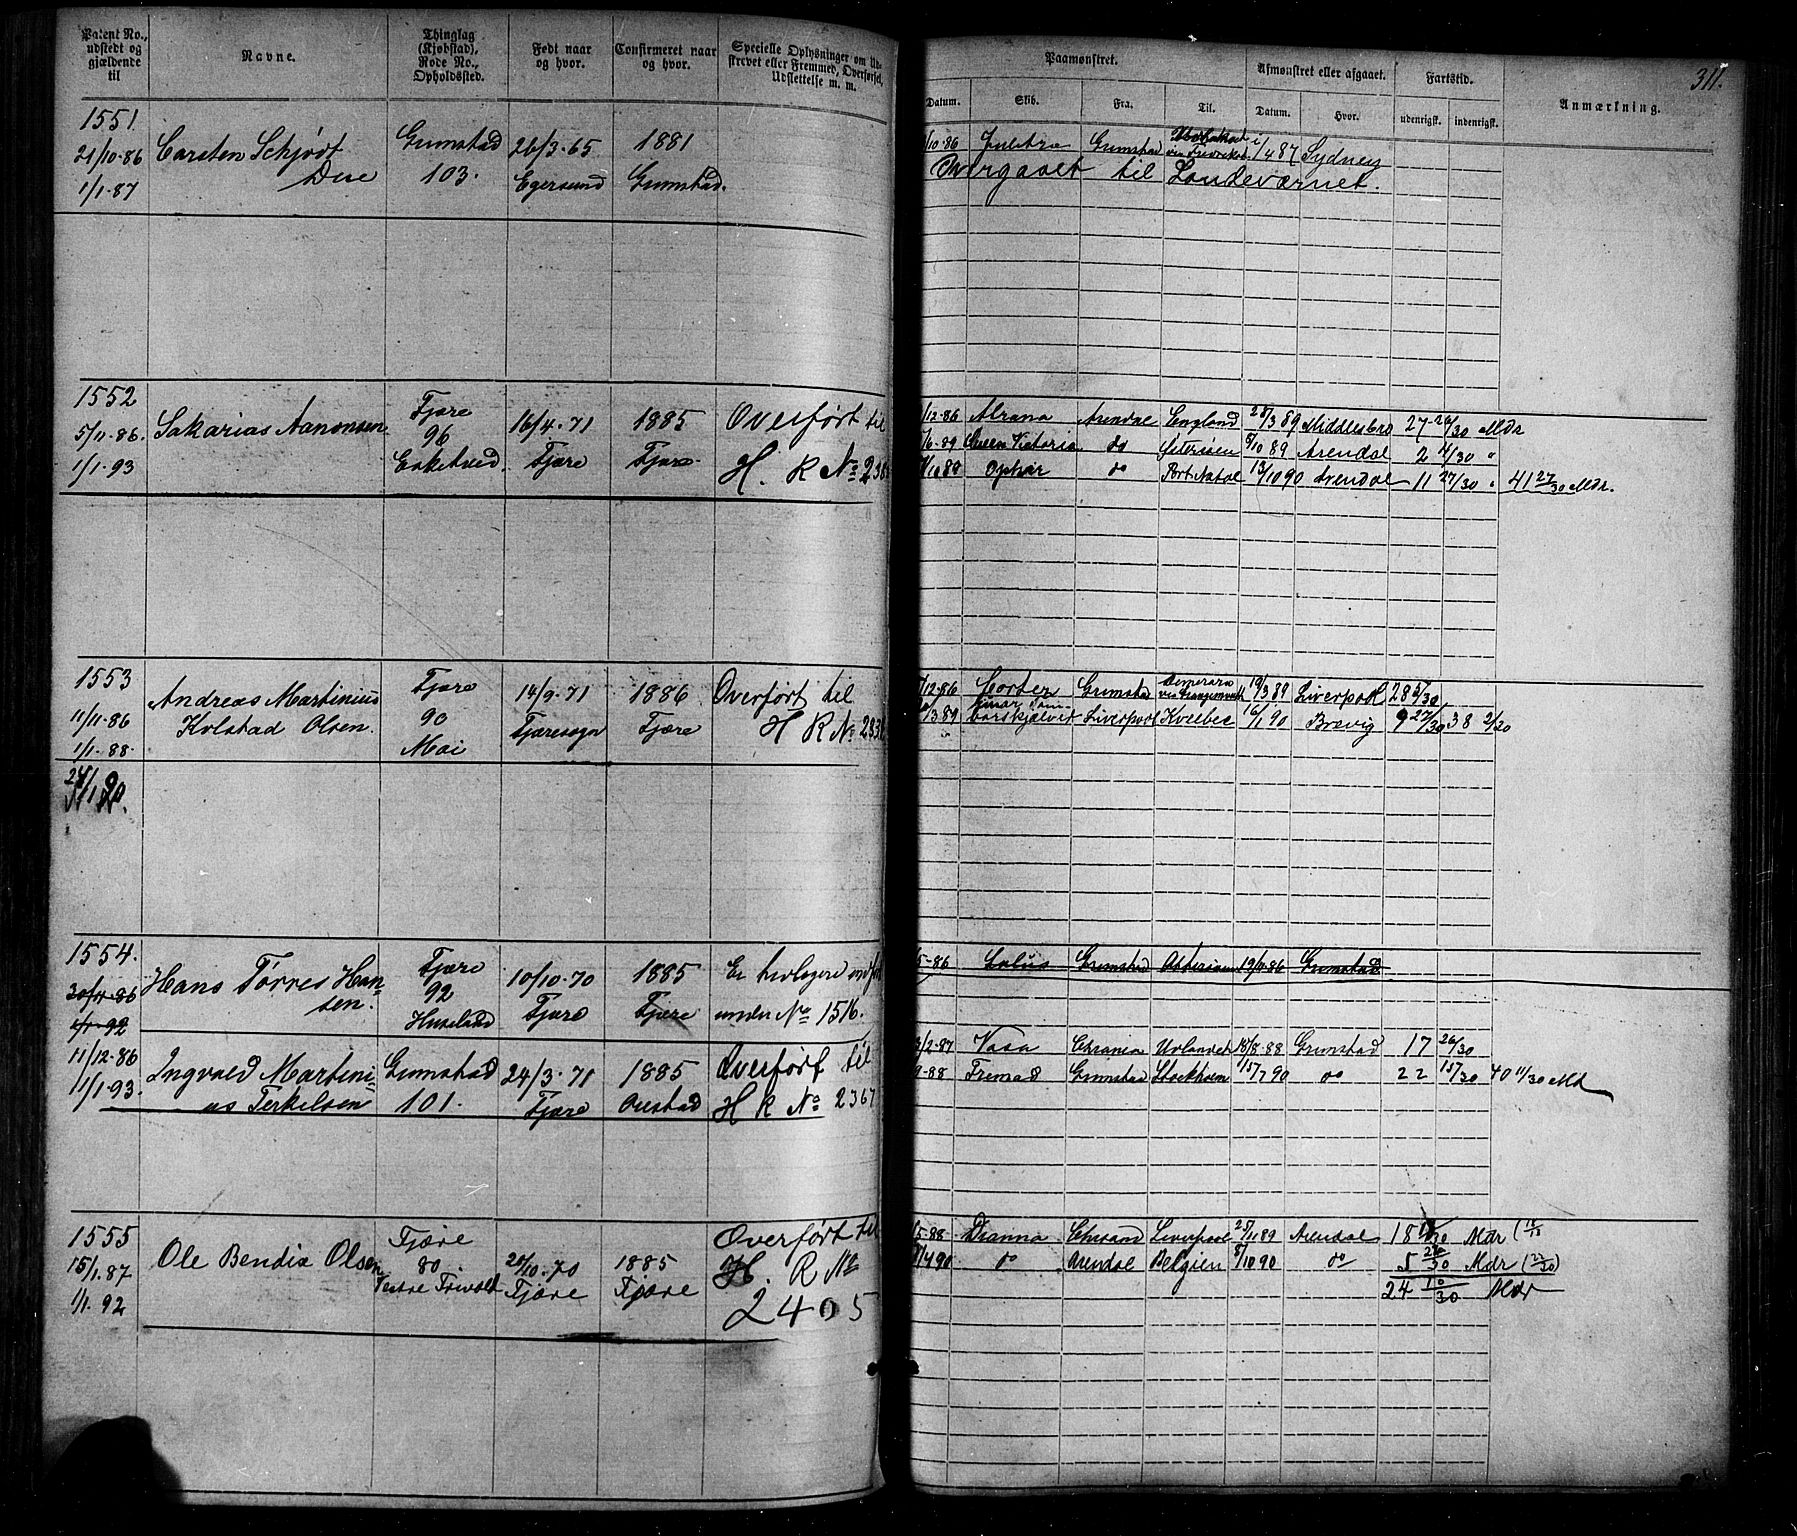 311.
Patent No., udstedt og gjældende til
Navne.
Thinglag (Kjøbstad), Rode No., Opholdssted.
Født naar og hvor.
Confirmeret naar og hvor.
Specielle Oplysninger om Udskrevet eller Fremmed, Overførsel, Udslettelse m. m.
Paamønstret.
Afmønstret eller afgaaet.
Fartstid.
Anmærkning.
Datum. Skib. Fra. Til. Datum. Hvor. udenrigsk. indenrigsk.
1551.
21/10-86
1/1-87
Carsten Schjödt
Due
Grimstad
103.
26/3-65
Egersund
1881
Grimstad.
/10-86 Grimstad 1/4 87 Sydney
Overgaaet til Landeværnet.
1552
5/11-86.
1/1-93
Sakarias Aanonsen
Fjære
96
16/4-71
Fjære
1885
Fjære
Overført til
H. R No 238
/12-86 Arendal England 25/3 89 Middlesbro 27-26/30 Mdr
/6-89 Queen Victoria do 5/10 89 Arendal 2 4/30 "
/10 89 Ophir do Port Natal 13/10 90 Arendal 11 27/30 " 41 27/30 Mdr.
1553
11/11-86
1/1-88
Andreas Martinius
Kolstad Olsen.
Fjære
90
Moi
14/9-71
Fjæresogn
1886
Fjære
Overført til
H R No 233
/12-86 Grimstad 19/3 89 Liverpool 28 5/30
/3 89 Liverpool Kvebec 6/1 90 Brevig 9 27/30 38 2/30
1554.
30/11-86
1/1-92
Hans Tørres Han-
sen.
Fjære
92
10/10-70
Fjære
1885
Fjære
Er tidligere indført
under No 1516.
5-86 Grimstad 19/9-86 Grimstad
11/12-86
1/1-93.
Ingvald Martini-
us Terkelsen
Grimstad
101.
24/3-71
Fjære
1885
Overført til
H R No 2367
3/2-87 Vasa Chrania Udlandet 15/8-88 Grimstad 17 26/30
9-88 Fremad Grimstad Stockholm 15/7 90 do 22 15/30 40 11/30 Md
1555
15/1.87
1/1.92
Ole Bendix Olsen
Fjære
80.
Vestre
24/10-70
Fjære
1885
Fjære
Overført til
H. R No
2405
5-88 Dianna Liverpool 25/11 89 Arendal 18 Mdr
/4 90 do Arendal Belgien 8/10 90 do 5 Mdr
24 10/30 Mdr